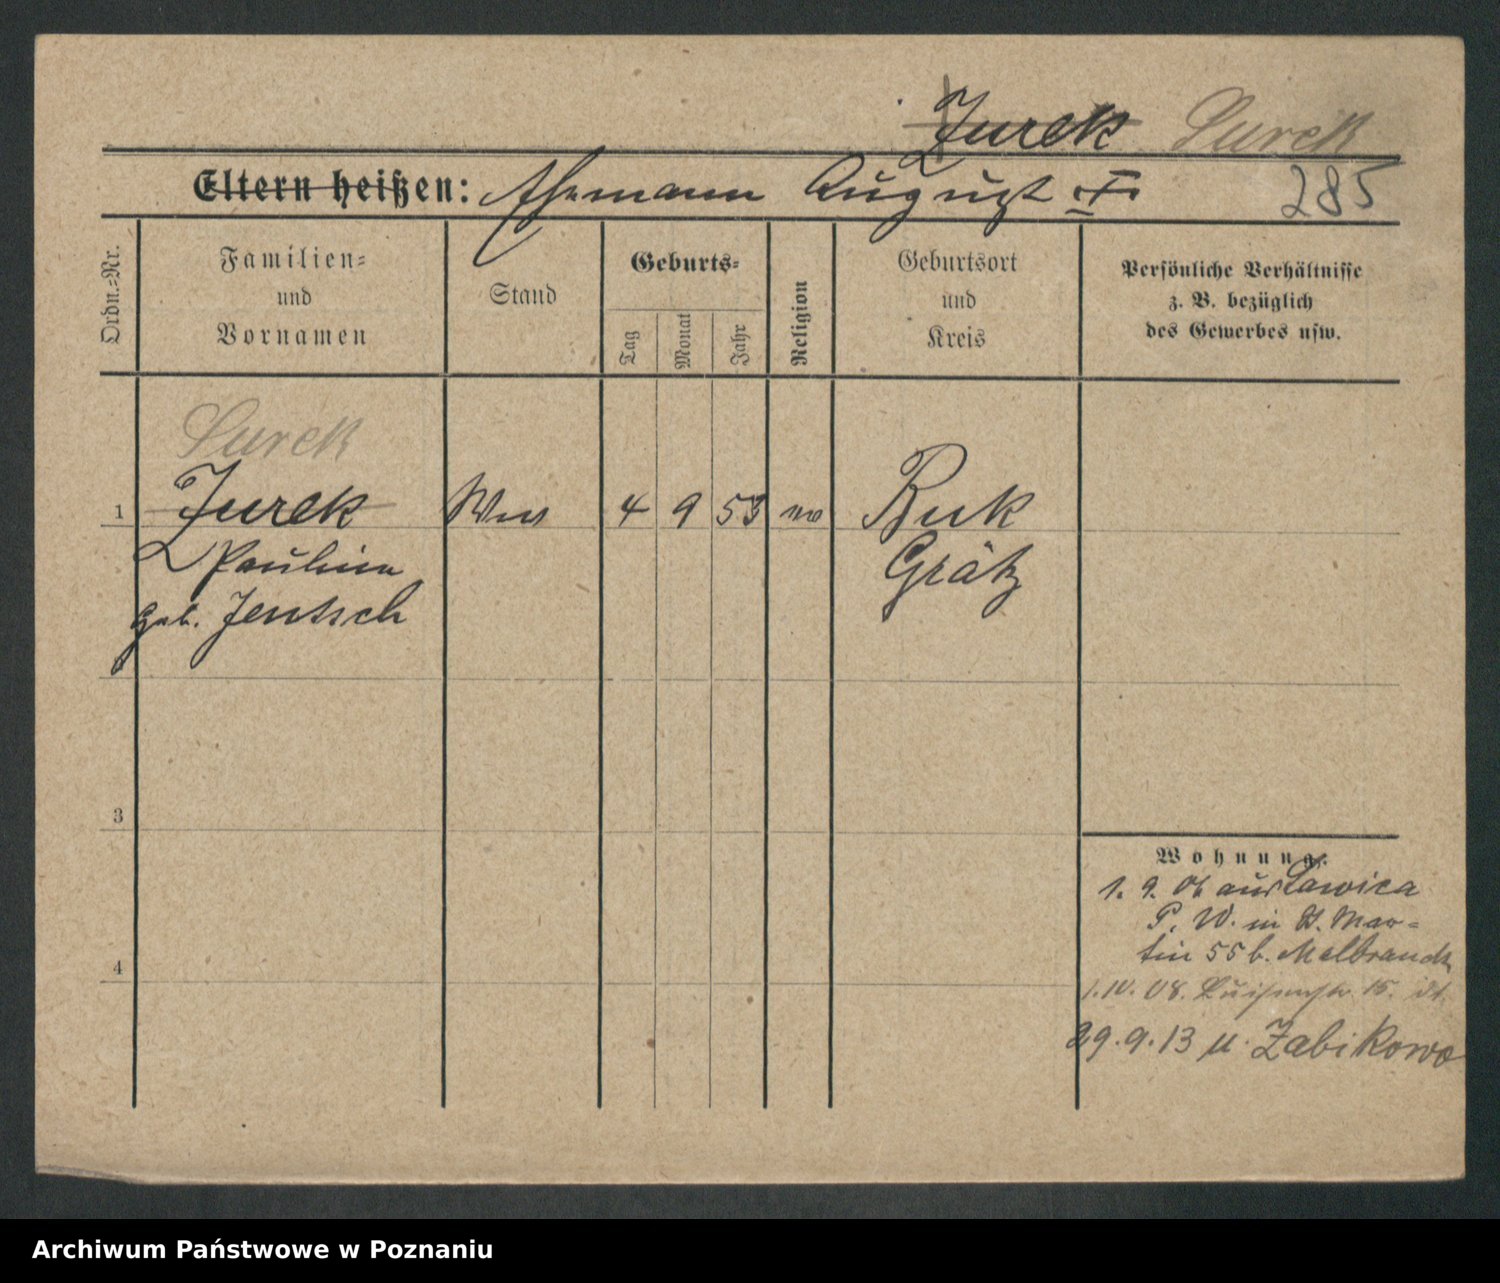 Jurek Surek
Eltern heißen: Ehemann August †
285
Ordn.=Nr.
Familien=
und
Vornamen
Stand
Geburts=
Tag
Monat
Jahr
Religion
Geburtsort
und
Kreis
Persönliche Verhältnisse
z. B. bezüglich
des Gewerbes usw.
Surek
1 Jurek Wwe 4 9 53 Buk
Paulina Grätz
geb. Jentsch
3
Wohnung:
1. 9. 06 aus Lawica
P. W. in St. Mar-
tin 55 b. Malbranck
4
1.10.08. Luisenstr. 15.
29.9.13 n. Zabikowo
Archiwum Państwowe w Poznaniu